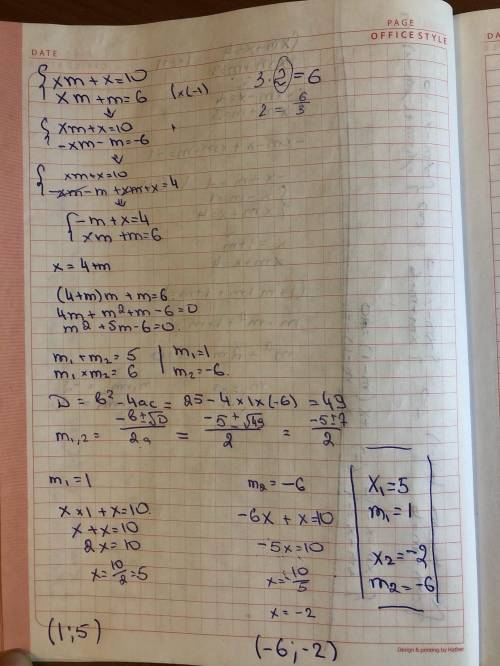 DATE
PAGE
OFFICE STYLE
DA
{ xm + x = 10
xm + m = 6 (x(-1)
3 · 2 = 6
2 = 6/3
{ xm + x = 10 +
-xm - m = -6
{ xm + x = 10
-xm - m + xm + x = 4
{ -m + x = 4
xm + m = 6
x = 4 + m
(4+m)m + m = 6
4m + m² + m - 6 = 0
m² + 5m - 6 = 0.
m₁ + m₂ = 5 | m₁ = 1
m₁ × m₂ = 6 | m₂ = -6.
D = b² - 4ac = 25 - 4 × 1 × (-6) = 49
m₁,₂ = (-b ± √D)/2a = (-5 ± √49)/2 = (-5 ± 7)/2
m₁ = 1
x × 1 + x = 10
x + x = 10
2x = 10
x = 10/2 = 5
(1 ; 5)
m₂ = -6
-6x + x = 10
-5x = 10
x = -10/5
x = -2
(-6 ; -2)
x₁ = 5
m₁ = 1
x₂ = -2
m₂ = -6
Design & printing by Hatter